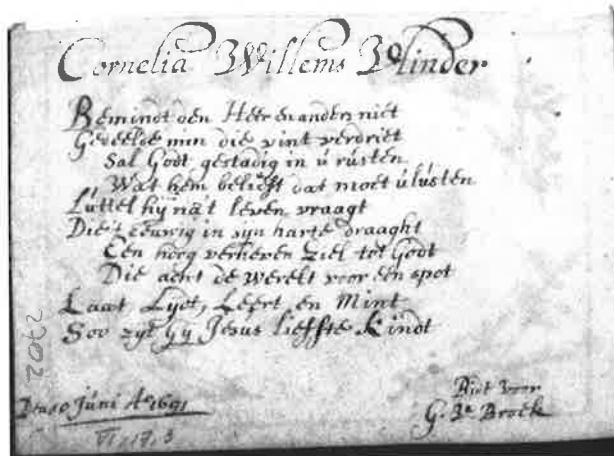 Cornelia Willems Vlinder
Bemindt den Heer en anders niet
Gedeelde min die vint verdriet
Sal Godt gestadig in ú rústen
Wat hem belieft dat moet ú lústen
Lúttel hij na't leven vraagt
Die't eeuwig in syn harte draaght
Een hoog verheven Ziel tot Godt
Die acht de werelt voor een spot
Laat, Lijdt, Leert, en Mint
Soo zyt gy Jesus liefste Kindt
2702
Den 10 Júni Ao 1691
Bidt voor
G. Va Brock
VI, 17, 3